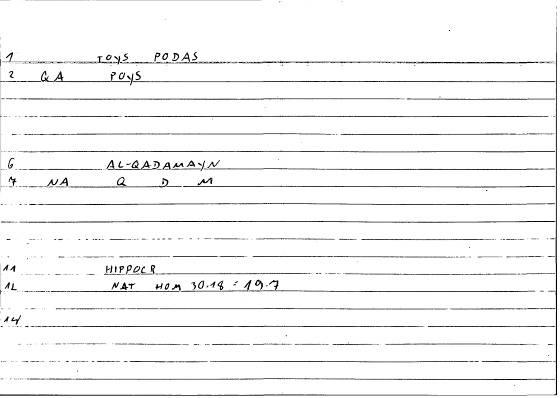 1 TOYS PODAS
2 QA POYS
6 AL-QADAMAYN
7 NA Q D M
11 HIPPOCR
12 NAT HOM 30.18 = 19.7
14